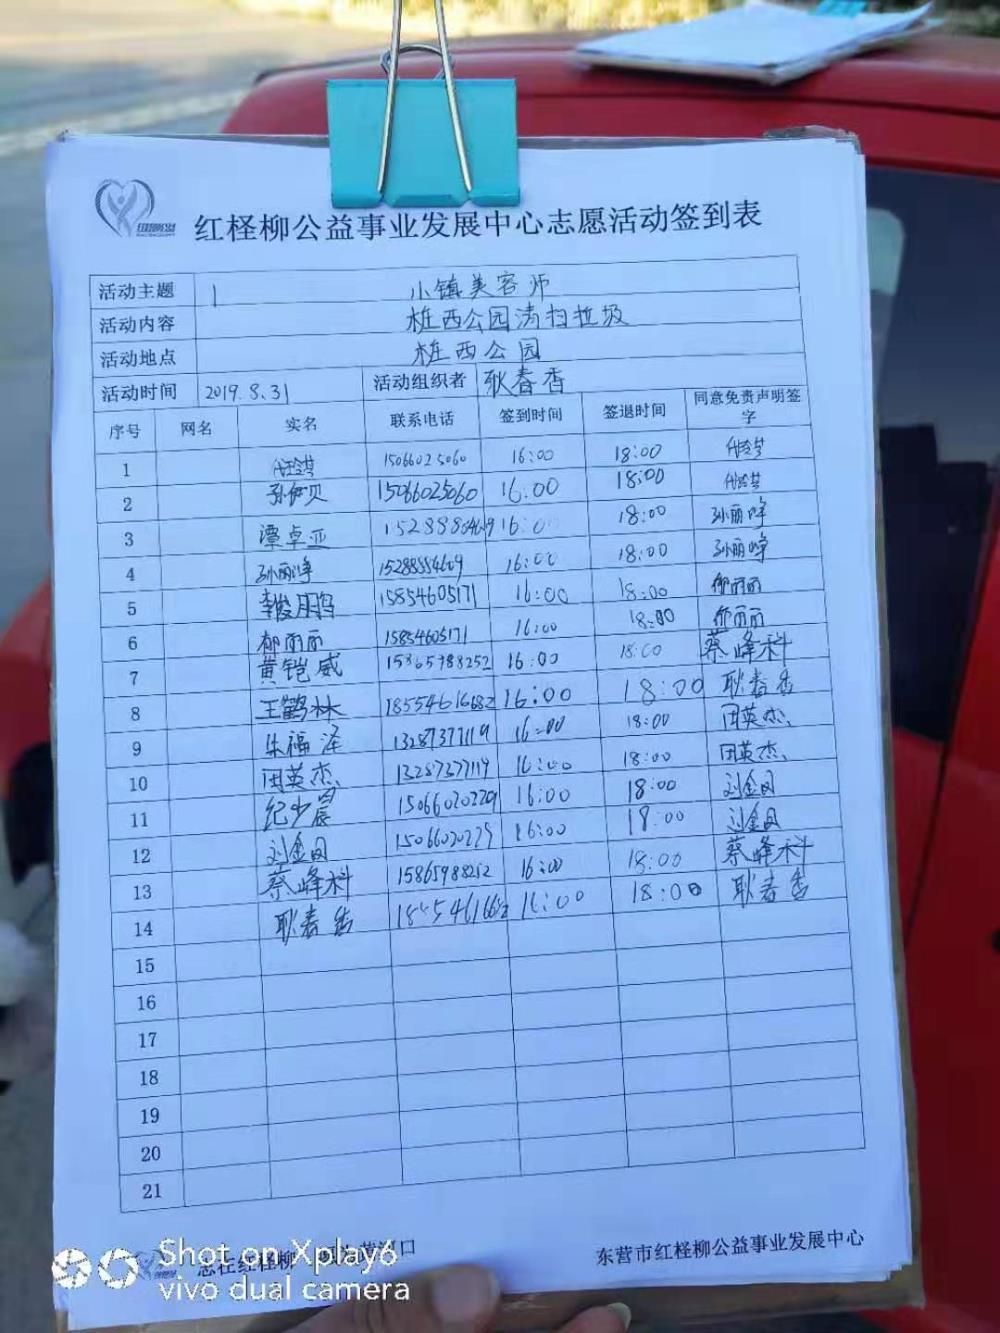 红柽柳公益事业发展中心志愿活动签到表
活动主题 小镇美容师
活动内容 桩西公园清扫垃圾
活动地点 桩西公园
活动时间 2019.8.31 活动组织者 耿春香
序号 网名 实名 联系电话 签到时间 签退时间 同意免责声明签字
1 15066025060 16:00 18:00
2 孙伊贝 15066025060 16:00 18:00
3 谭卓亚 16:00 18:00 孙丽峥
4 孙丽峥 15288854609 16:00 18:00 孙丽峥
5 15854605171 16:00 18:00 郁丽丽
6 郁丽丽 15854605171 16:00 18:00 郁丽丽
7 黄铠威 15865988252 16:00 18:00 蔡峰科
8 王鹤林 18554616682 16:00 18:00 耿春香
9 朱福泽 13287377119 16:00 18:00 田英杰
10 田英杰 13287377119 16:00 18:00 田英杰
11 纪少晨 15066020229 16:00 18:00 刘金凤
12 刘金凤 16:00 18:00 刘金凤
13 蔡峰科 15865988252 16:00 18:00 蔡峰科
14 耿春香 18554616682 16:00 18:00 耿春香
15
16
17
18
19
20
21
志在红柽柳 河口
东营市红柽柳公益事业发展中心
Shot on Xplay6
vivo dual camera